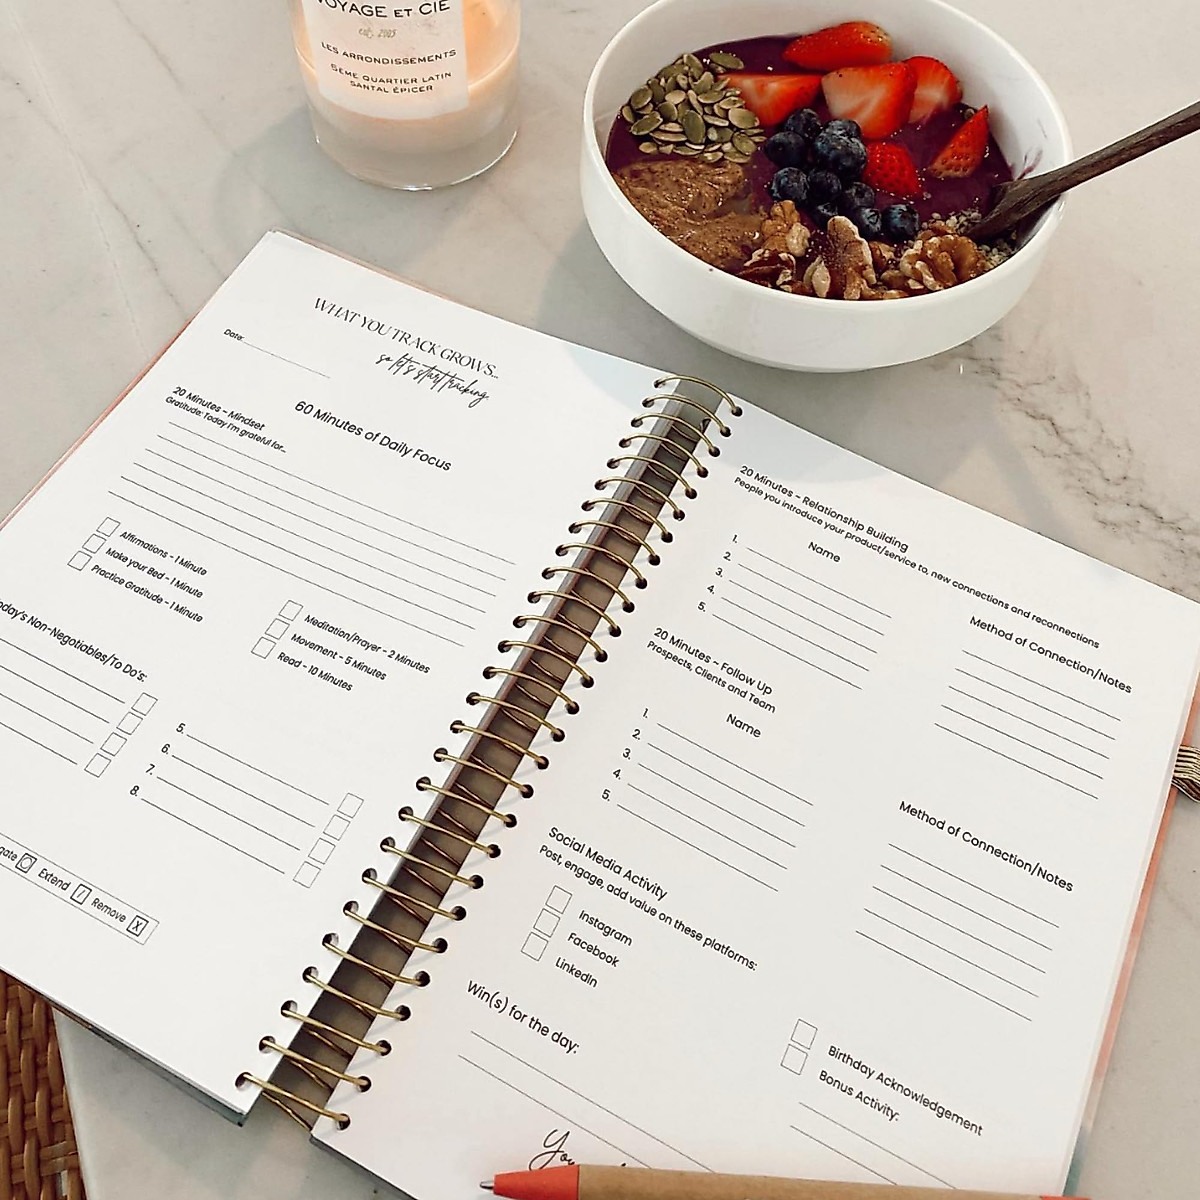 VOYAGE ET CIE
est. 2005
LES ARRONDISSEMENTS
5EME QUARTIER LATIN
SANTAL ÉPICER
WHAT YOU TRACK GROWS...
so let's start tracking.
Date:
60 Minutes of Daily Focus
20 Minutes - Mindset
Gratitude: Today I'm grateful for...
Affirmations - 1 Minute
Make your Bed - 1 Minute
Practice Gratitude - 1 Minute
Meditation/Prayer - 2 Minutes
Movement - 5 Minutes
Read - 10 Minutes
Non-Negotiables/To Do's:
5.
6.
7.
8.
Extend / Remove X
20 Minutes - Relationship Building
People you introduce your product/service to, new connections and reconnections
Name
Method of Connection/Notes
1.
2.
3.
4.
5.
20 Minutes - Follow Up
Prospects, Clients and Team
Name
Method of Connection/Notes
1.
2.
3.
4.
5.
Social Media Activity
Post, engage, add value on these platforms:
Instagram
Facebook
LinkedIn
Birthday Acknowledgement
Bonus Activity:
Win(s) for the day: